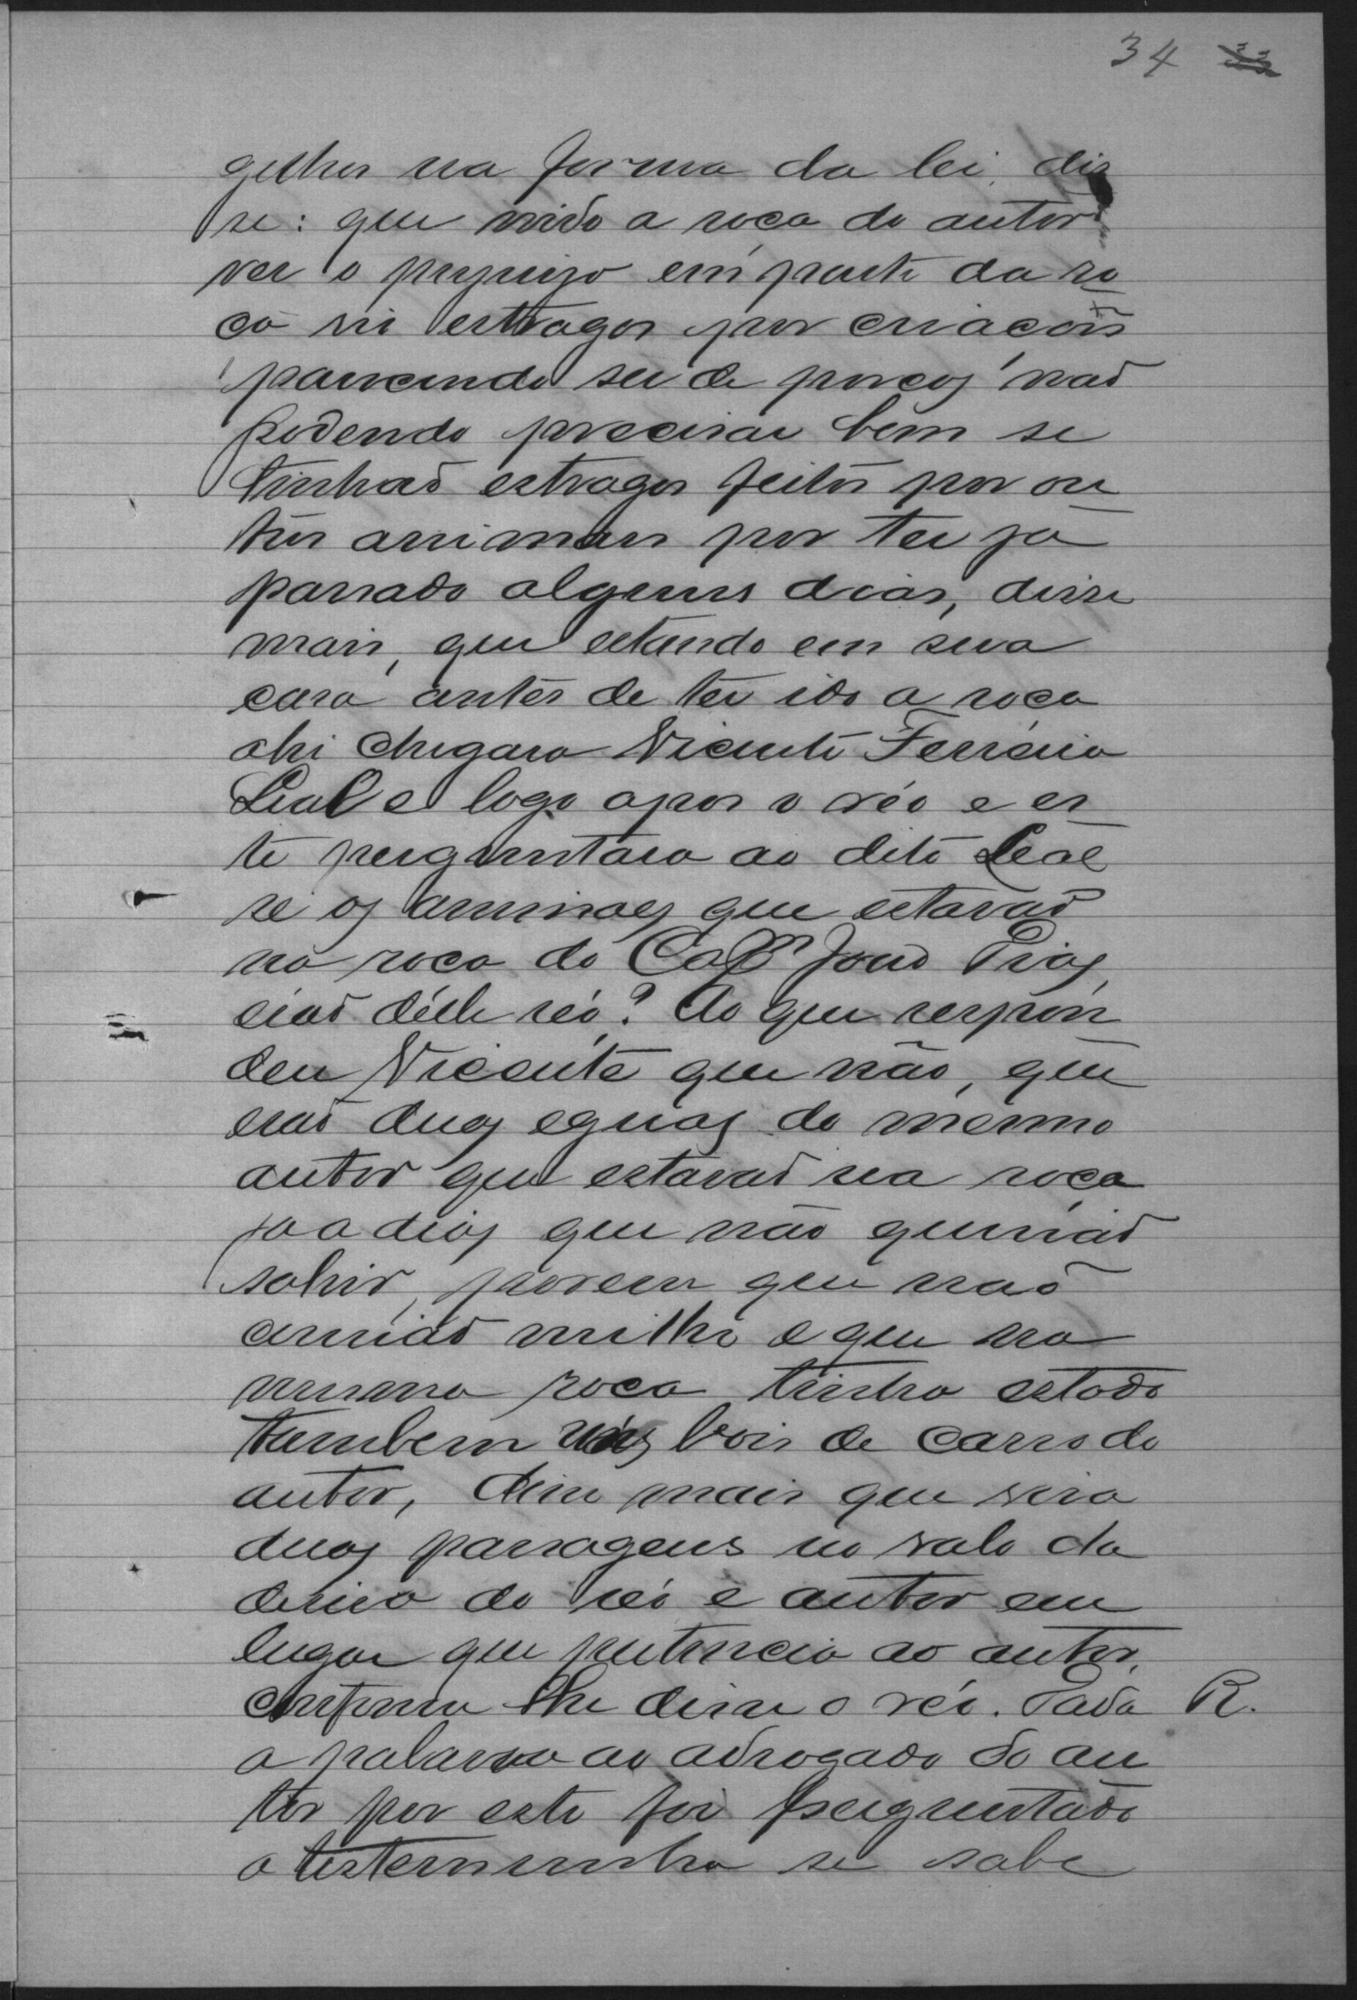 34 33
gelhos na forma da lei, dis
se: que indo a roca do autor
ver o prejuizo em parte da ro
ca vio estragos por criacois
parecendo ser de porcos não
podendo precisar bem se
tinhão estragos feitos por ou
tros animaes por ter ja
passado alguns dias, disse
mais, que estando em sua
casa antes de ter ido a roca
ahi chegara Vicente Ferreira
Leal e logo apos o réo e es
te perguntara ao dito Leal
se os animaes que estavão
na roca do Capm João Dias
erão delle réo? Ao que respon
deu Vicente que não, que
erão duas eguas do mesmo
autor que estavão na roça
ja a dias que não querião
sahir, porem que não
comião milho e que na
mesma roca tinha estado
tambem uns bois de carro do
autor, disse mais que vira
duas passagens no valo da
devisa do réo e autor em
lugar que pertencia ao autor,
conforme lhe disse o réo. Dada R.
a palavra ao advogado do au
tor por este foi perguntado
a testemunha se sabe